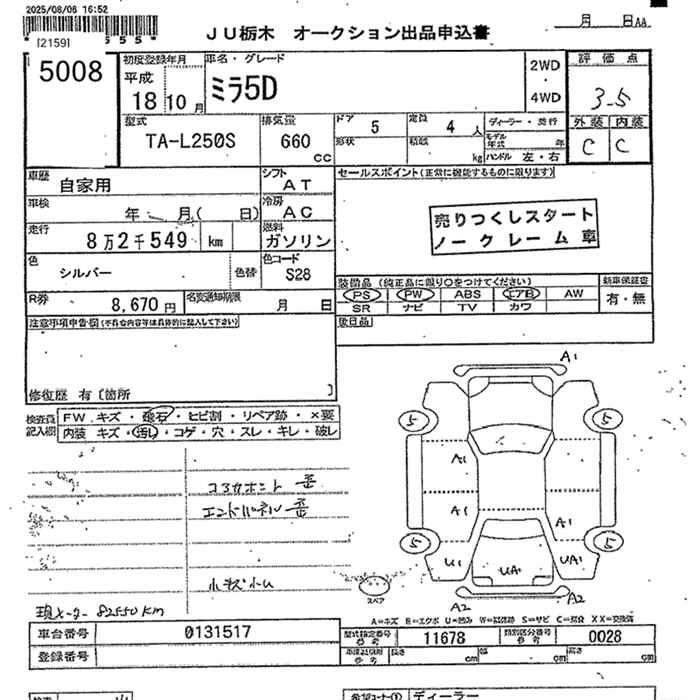 2025/08/06 16:52
[2159]
5 5 5
JU栃木 オークション出品申込書
月 日AA
5008
初度登録年月
平成
18 10 月
車名・グレード
ミラ5D
2WD
・
4WD
評価点
3.5
外装 内装
C C
型式
TA-L250S
排気量
660
cc
ドア 5
定員 4 人
形状
積載 kg
ディーラー・並行
モデル年式 年
ハンドル 左・右
車歴
自家用
シフト
AT
車検
年 月( 日)
冷房
AC
走行
8万2千549 km
燃料
ガソリン
色
シルバー
色替
色コード
S28
R券
8,670 円
名変通知期限
月 日
セールスポイント(正常に機能するものに限ります)
売りつくしスタート
ノークレーム車
装備品(純正品に限り○をつけてください)
PS PW ABS エアB AW
SR ナビ TV カワ
新車保証書
有・無
後日品
注意事項申告欄(不具合内容等は具体的に記入して下さい)
修復歴 有〔箇所 〕
検査員記入欄
FW キズ・飛石・ヒビ割・リペア跡・×要
内装 キズ・汚れ・コゲ・穴・スレ・キレ・破レ
コアサポート 歪
エンドパネル 歪
小キズ小U
現メーター 82550KM
A1
5
5
A1
A1
A1
5
5
U1
UA1
UA1
スペア
A2
A2
A=キズ E=エクボ U=凹み W=補修跡 S=サビ C=腐食 XX=交換済
車台番号
0131517
登録番号
型式指定番号
参考
11678
類別区分番号
参考
0028
長さ cm
幅 cm
高さ cm
ディーラー